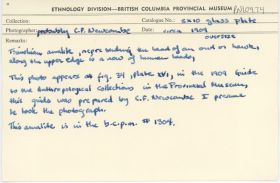 ETHNOLOGY DIVISION—BRITISH COLUMBIA PROVINCIAL MUSEUM
Collection: Catalogue No.: 8x10 glass plate
Photographer: probably C.F. Newcombe Date: circa 1909
Remarks:
Tsimshian amalite, representing the head of an owl or hawk,
along the upper edge is a row of human heads,
This photo appears as fig. 34, plate XVI, in the 1909 Guide
to the Anthropological Collections in the Provincial Museum,
this guide was prepared by C.F. Newcombe I presume
he took the photograph.
This amalite is in the b.c.p.m. # 1304.